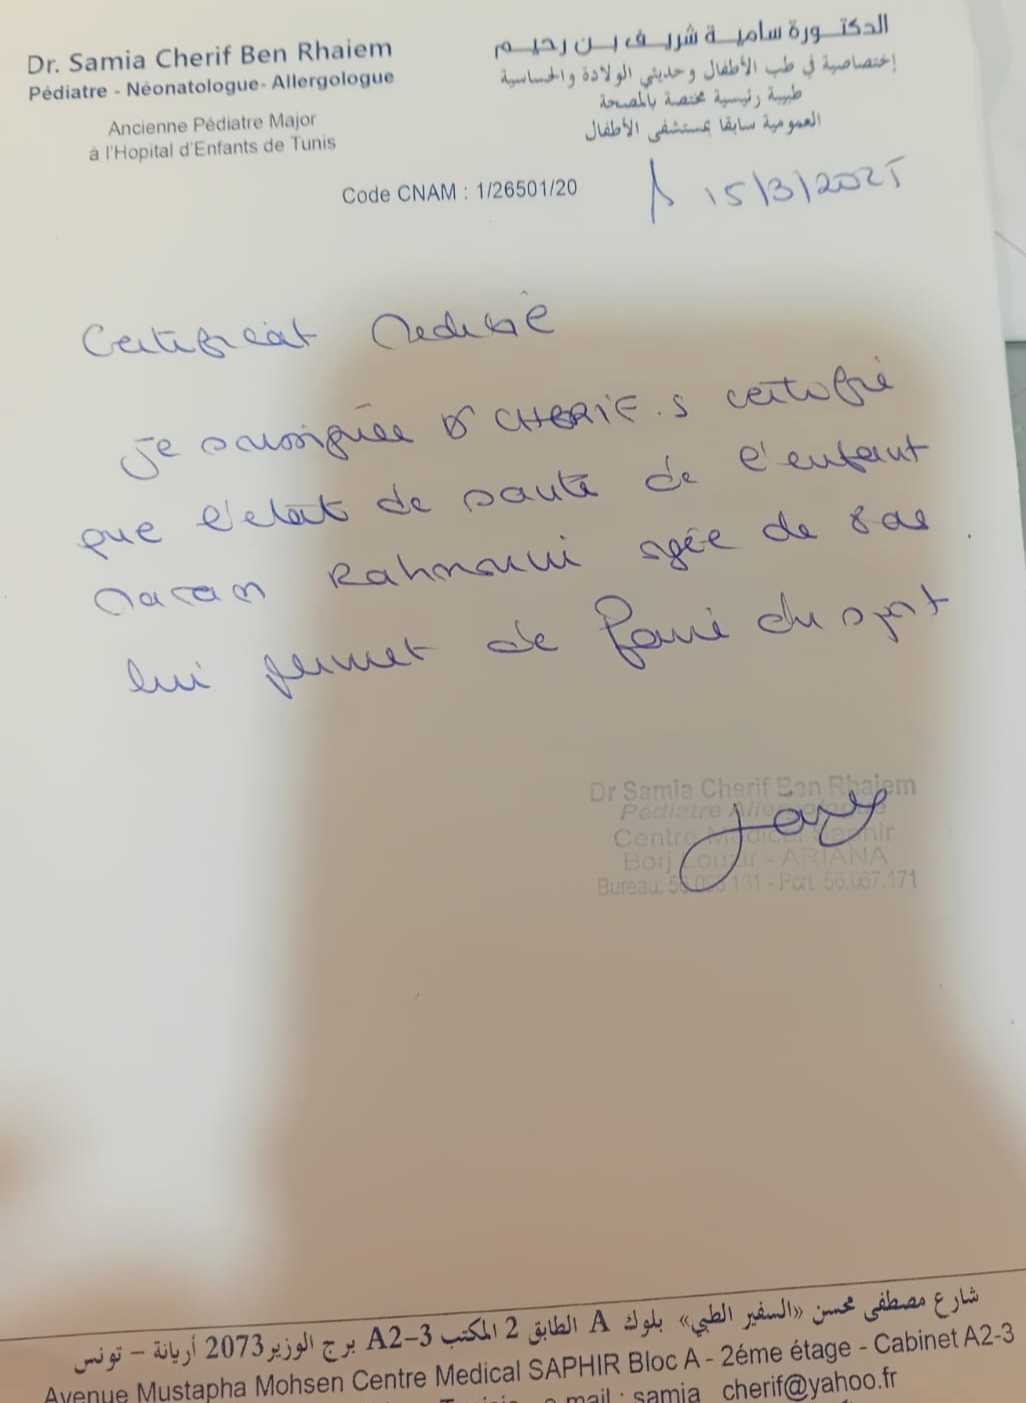 Dr. Samia Cherif Ben Rhaiem
Pédiatre - Néonatologue- Allergologue
Ancienne Pédiatre Major
à l'Hopital d'Enfants de Tunis
الدكتورة سامية شريف بن رحيم
إختصاصية في طب الأطفال وحديثي الولادة والحساسية
طبيبة رئيسية مختصة بالمصحة
العمومية سابقا بمستشفى الأطفال
Code CNAM : 1/26501/20
15/3/2025
Certificat Medical
Je soussignée Dr CHERIF.S certifie
que l'etat de santé de l'enfant
Maram Rahmouni agée de 8 as
lui permet de faire du sport
Dr Samia Cherif Ben Rhaiem
Pédiatre Allergologue
Centre Médical Saphir
Borj Louzir - ARIANA
Bureau: 131 - Port: 56.067.171
شارع مصطفى محسن «السفير الطبي» بلوك A الطابق 2 المكتب A2-3 برج الوزير 2073 أريانة - تونس
Avenue Mustapha Mohsen Centre Medical SAPHIR Bloc A - 2éme étage - Cabinet A2-3
mail : samia_cherif@yahoo.fr